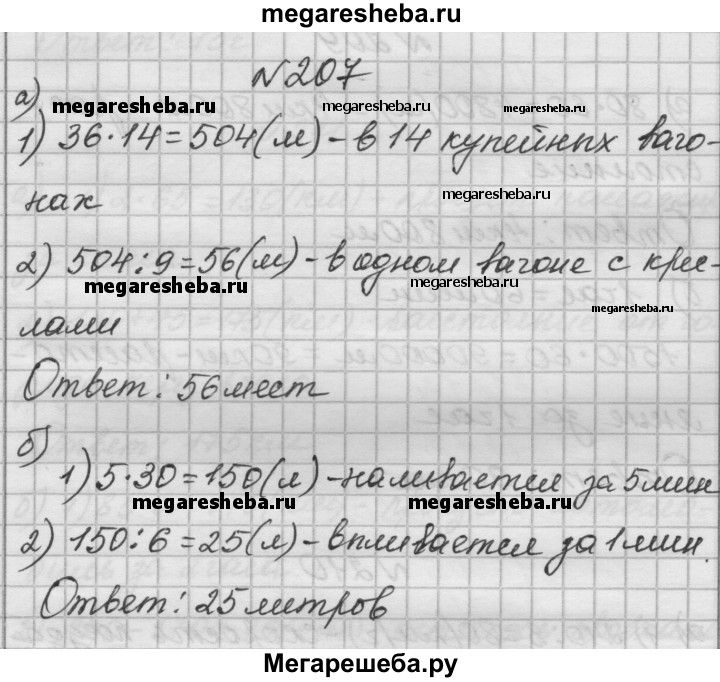 megaresheba.ru
№207
а)
megaresheba.ru megaresheba.ru megaresheba.ru
1) 36·14=504(м)-в 14 купейных ваго-
megaresheba.ru
нах
2) 504:9=56(м)-в одном вагоне с крес-
megaresheba.ru megaresheba.ru
megaresheba.ru
лами
Ответ: 56 мест
б)
1) 5·30=150(л)-наливается за 5 мин
megaresheba.ru megaresheba.ru
2) 150:6=25(л)-впливается за 1 мин.
Ответ: 25 литров
Мегарешеба.ру